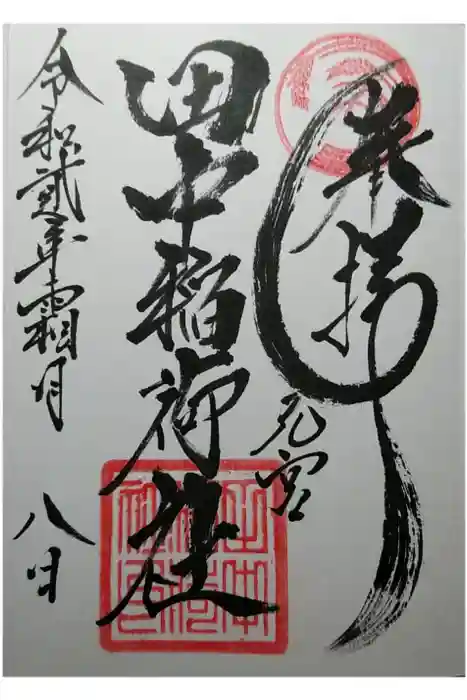 奉拝
元宮
田中稲荷社
令和弐年霜月
八日